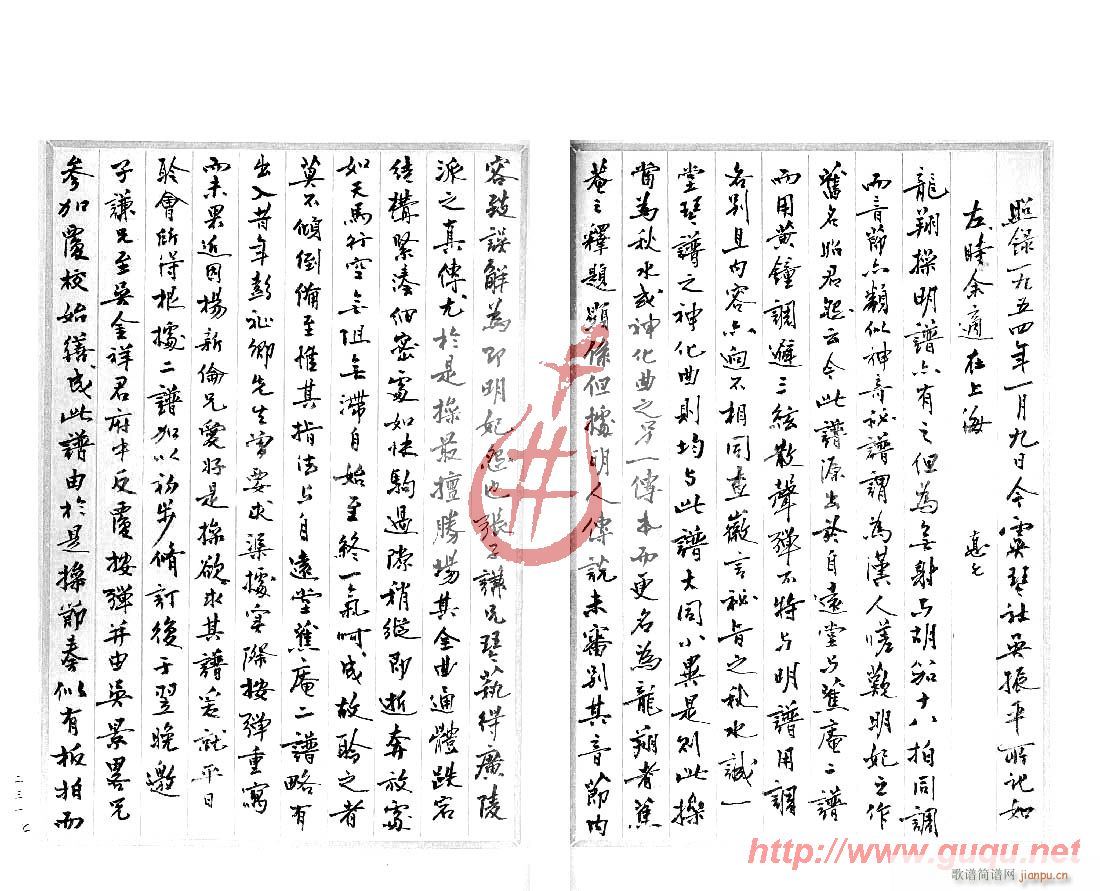 照錄一九五四年一月九日今虞琴社吳振平所記如
左時余適在上海
龍翔操明譜亦有之但為無射與胡笳十八拍同調
而音節亦類似神奇秘譜謂為漢人嗟歎明妃之作
舊名昭君怨云今此譜源出於自遠堂與蕉庵二譜
而用黃鐘調遞三絃散聲彈不特與明譜用調
各別且內容亦迥不相同查徽言秘旨之秋水誠一
堂琴譜之神化曲則均與此譜大同小異是則此操
當為秋水或神化曲之另一傳本而更名為龍翔者蕉
菴之釋題顯係但據明人傳說未審別其音節內
容致誤解為即明妃怨也張子謙兄琴藝得廣陵
派之真傳尤於是操最擅勝場其全曲通體跌宕
結構緊湊細密處如快駒過隙稍縱即逝奔放處
如天馬行空無阻無滯自始至終一氣呵成故聆之者
莫不傾倒備至惟其指法與自遠堂蕉庵二譜略有
出入昔年彭祉卿先生曾要求渠據實際按彈重寫
而未果近因楊新倫兄愛好是操欲求其譜爰就平日
聆會所得根據二譜加以初步脩訂後于翌晚邀
子謙兄至吳金祥君府中反覆按彈并由吳景畧兄
參加覆校始繕成此譜由於是操節奏似有板拍而
二三一
http://www.guqu.net
歌谱简谱网 jianpu.cn